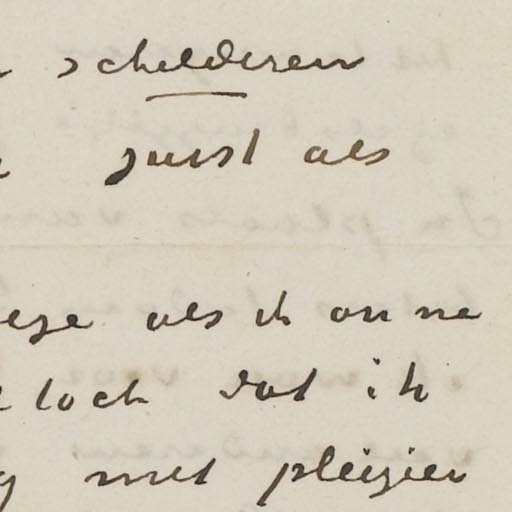 schilderen
juist als
als ik on ne
toch dat ik
met pleizier